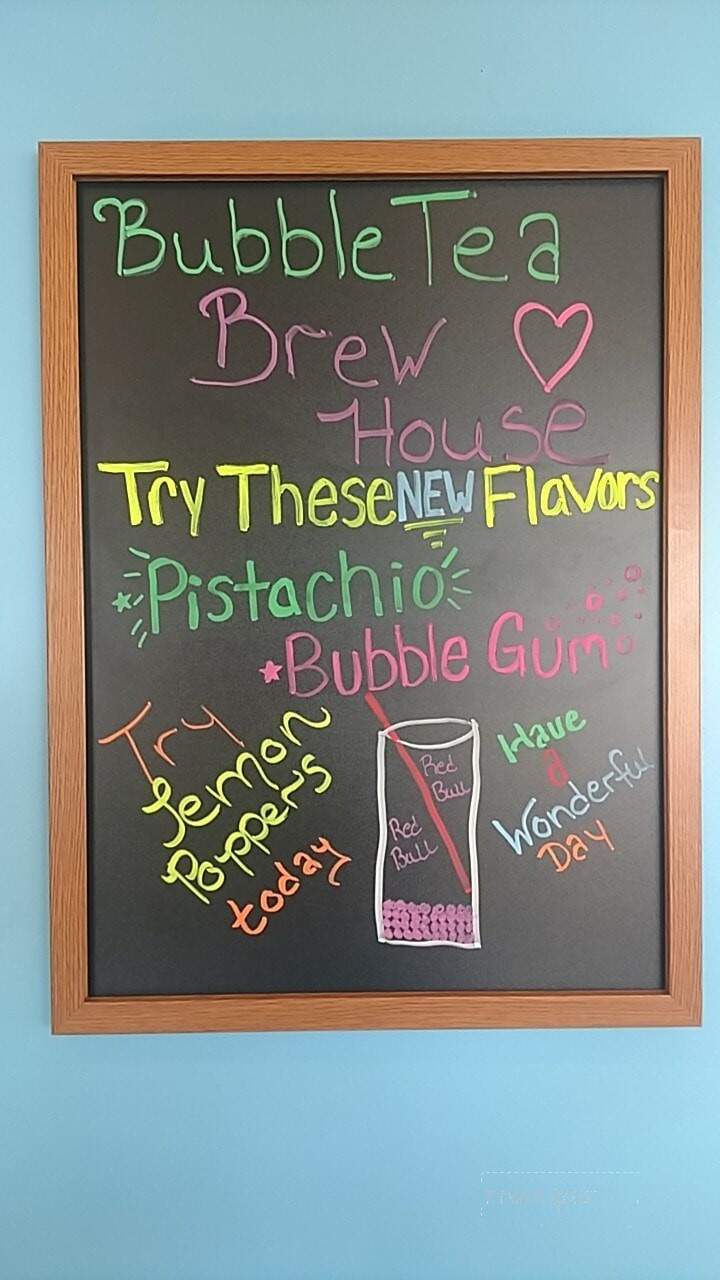 Bubble Tea
Brew
House
Try These NEW Flavors
Pistachio
Bubble Gum
Try
Lemon
Poppers
today
Red
Bull
Red
Bull
Have
a
Wonderful
Day